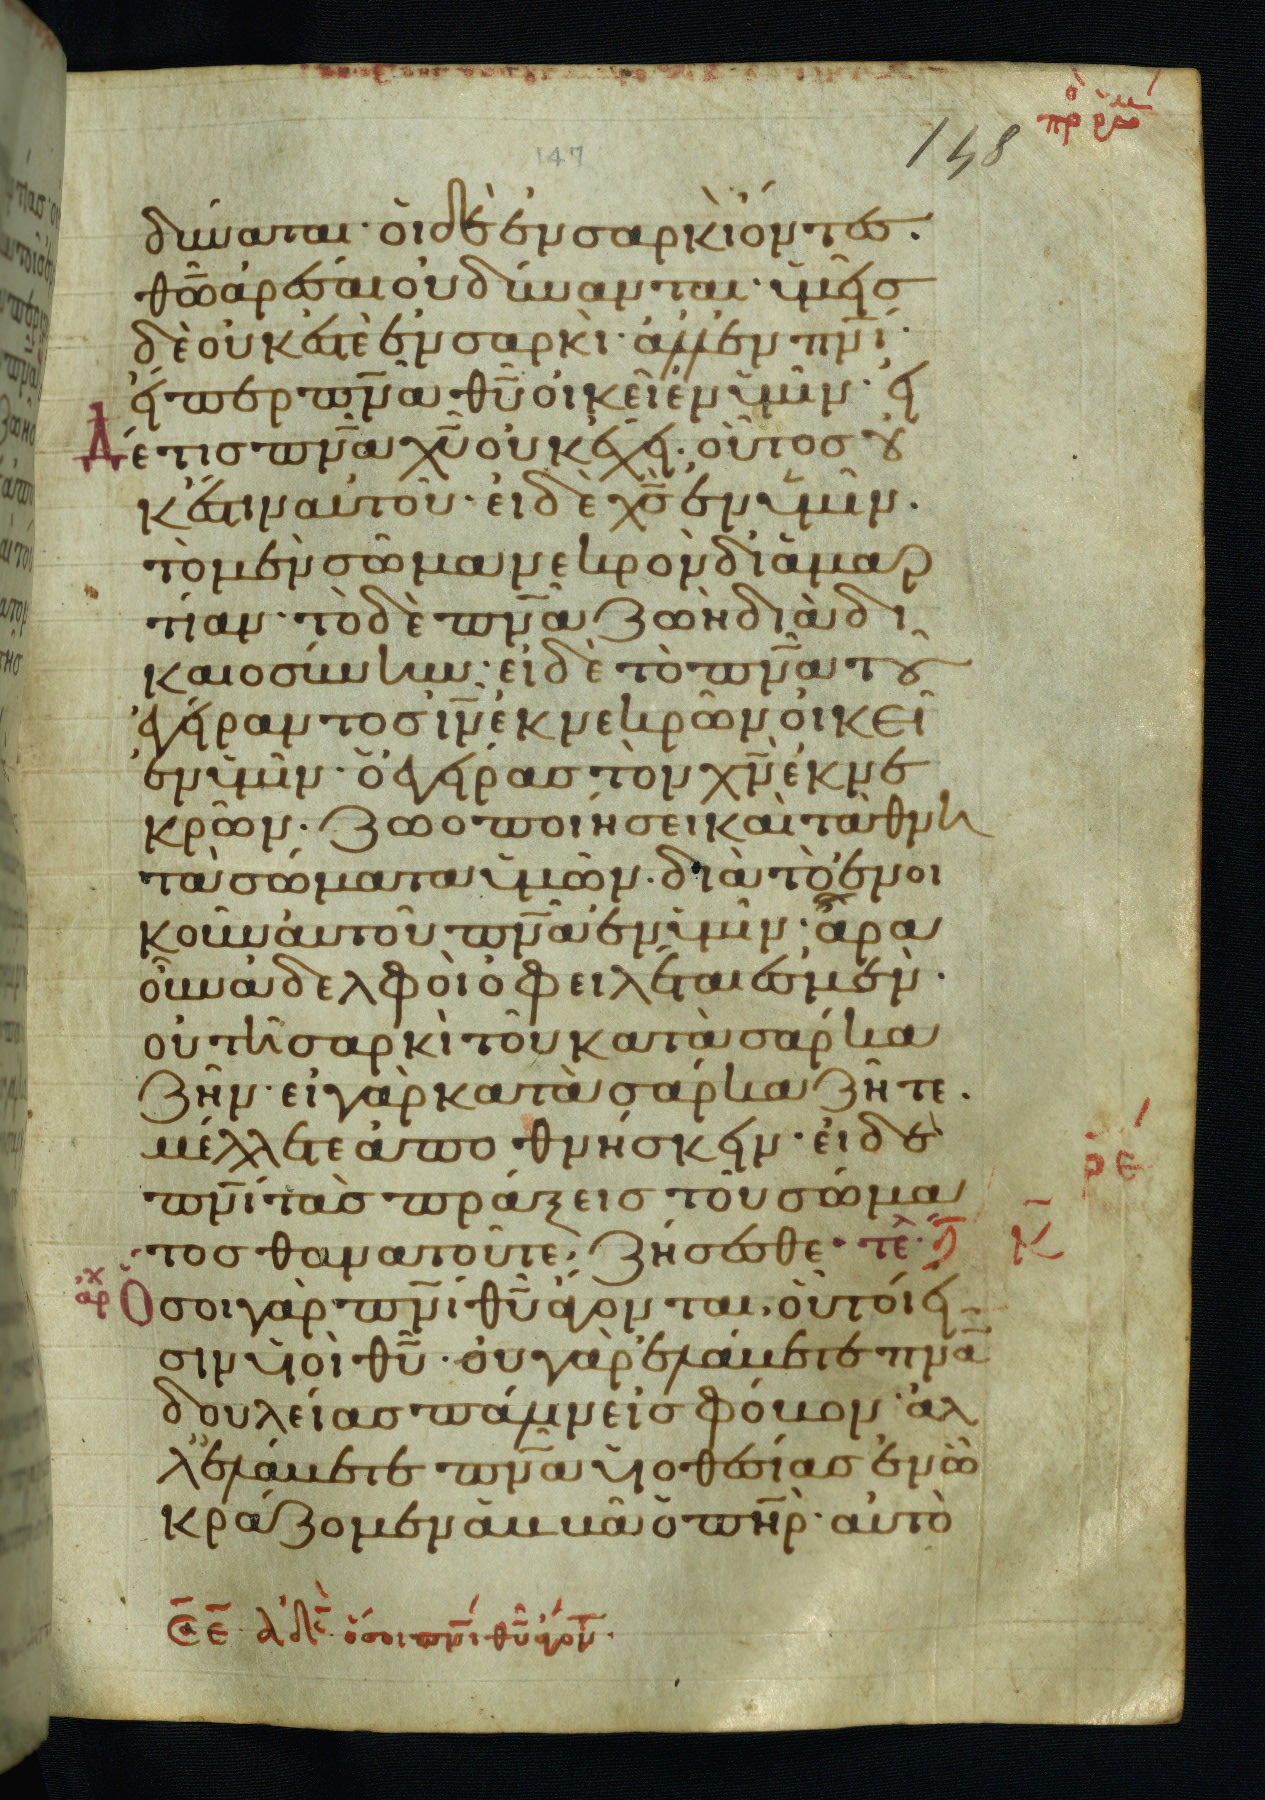 πρ ρω
148
147
δύναται· ὁι δὲ ἐν σαρκὶ ὄντες.
θω ἀρέσαι οὐ δύνανται· ὑμεῖς
δὲ οὐκ ἐστὲ ἐν σαρκὶ· ἀλλ' ἐν πνι·
εἴπερ πνα θυ οἰκεῖ ἐν ὑμῖν· εἰ
δέ τις πνα χυ οὐκ ἔχει· οὗτος οὐ
κ ἔστιν αὐτοῦ· εἰ δὲ χς ἐν ὑμῖν.
τὸ μὲν σῶμα νεκρὸν δι ἁμαρ
τίαν· τὸ δὲ πνα ζωὴ διὰ δι
καιοσύνην· εἰ δὲ τὸ πνα τοῦ
ἐγείραντος ιν ἐκ νεκρῶν οἰκεῖ
ἐν ὑμῖν· ὁ ἐγείρας τὸν χν ἐκ νε
κρῶν. ζωοποιήσει καὶ τὰ θνη
τὰ σώματα ὑμῶν· διὰ τὸ ἐνοι
κοῦν ἀυτοῦ πνα ἐν ὑμῖν· ἄρα
οὖν ἀδελφοὶ ὀφειλέται ἐσμὲν·
οὐ τῆ σαρκὶ τοῦ κατὰ σάρκα
ζῆν· εἰ γὰρ κατὰ σάρκα ζῆτε.
μέλλετε ἀποθνήσκειν· εἰ δὲ
ρε
πνι τὰς πράξεις τοῦ σώμα
τος θανατοῦτε· ζήσεσθε· τε
Κ
αρχ Ὅσοι γὰρ πνι θυ ἄγονται, οὗτοί εἰ
σιν υἱοὶ θυ· οὐ γὰρ ἐλάβετε πνα
δουλείας πάλιν εἰς φόβον· ἀλ
λ' ἐλάβετε πνα υἱοθεσίας ἐν ᾧ
κράζομεν ἀββᾶ ὁ πηρ· αὐτὸ
αδε ὅσοι πνι θυ ἄγον